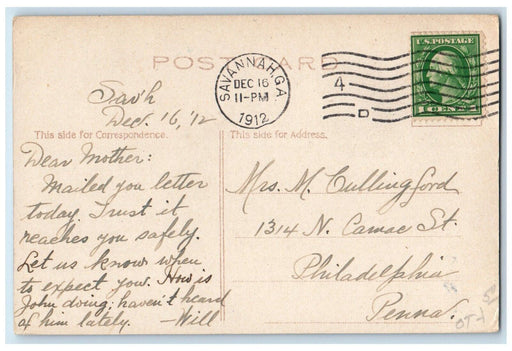 POST CARD
SAVANNAH, GA.
DEC 16
11-PM
1912
4
D
U.S. POSTAGE
1 CENT 1
Sav'h
Dec. 16, '12
This side for Correspondence.
This side for Address.
Dear Mother:
Mailed you letter
today. Trust it
reaches you safely.
Let us know when
to expect you. How is
John doing; haven't heard
of him lately. —Will
Mrs. M. Cullingford
1314 N. Camac St.
Philadelphia
Penna.